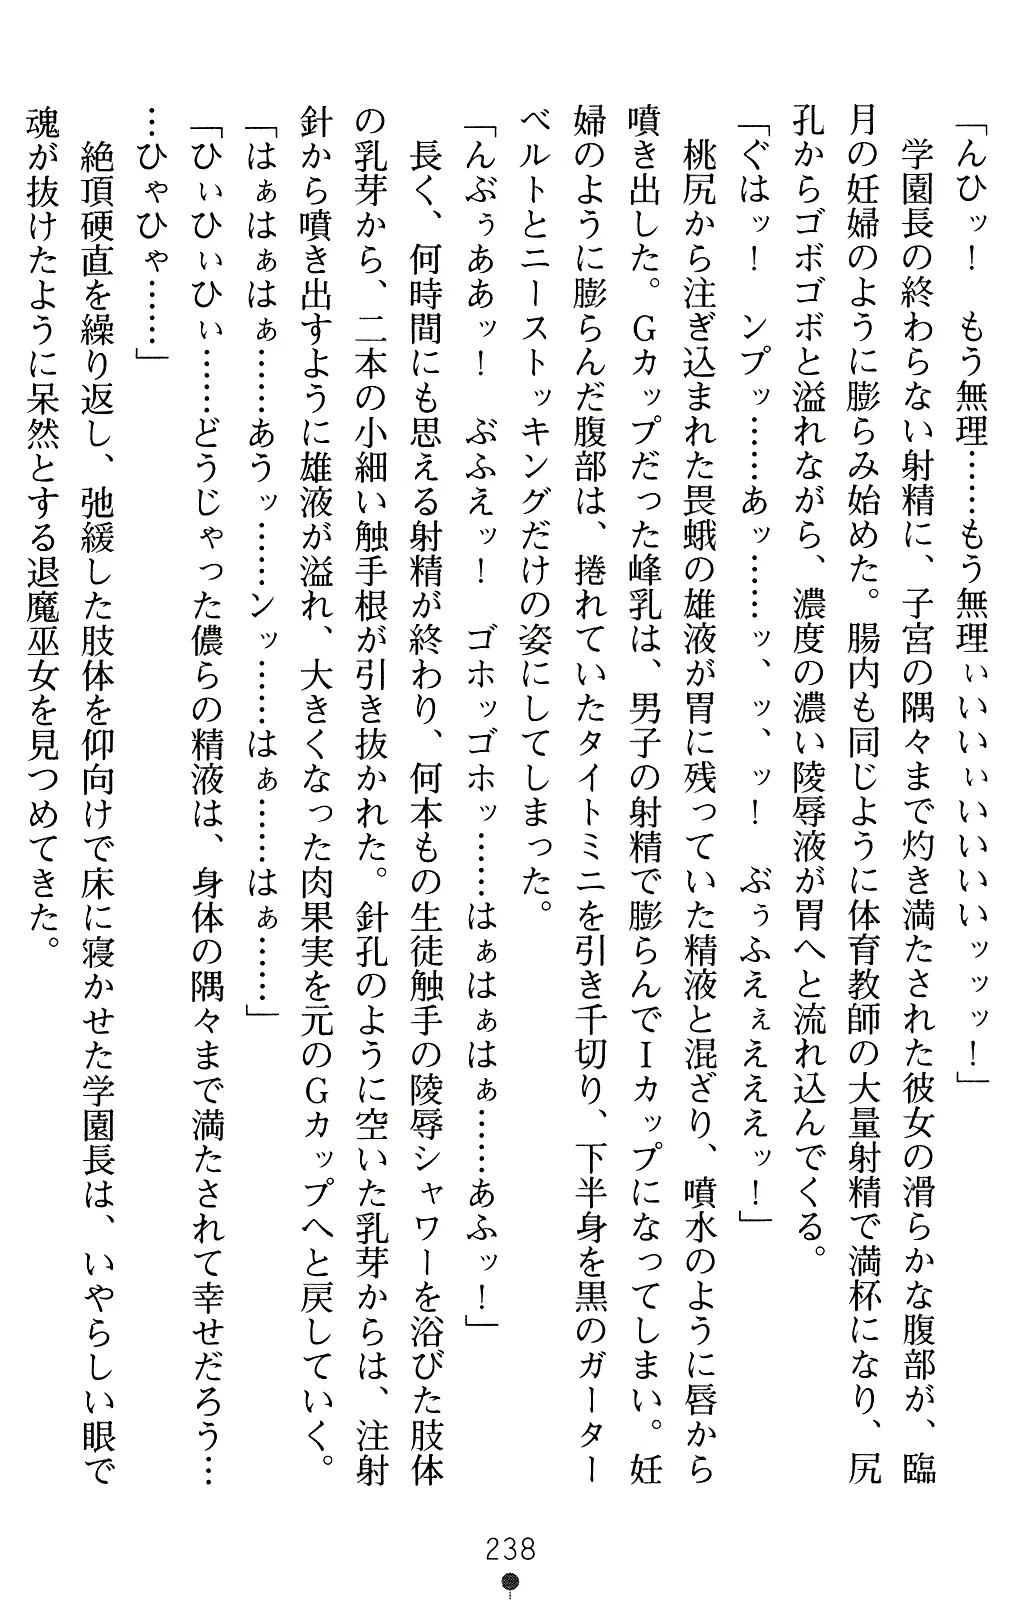 「んひッ！　もう無理……もう無理ぃいいぃいいいいッッッ！」
　学園長の終わらない射精に、子宮の隅々まで灼き満たされた彼女の滑らかな腹部が、臨
月の妊婦のように膨らみ始めた。腸内も同じように体育教師の大量射精で満杯になり、尻
孔からゴボゴボと溢れながら、濃度の濃い陵辱液が胃へと流れ込んでくる。
「ぐはッ！　ンプッ……あッ……ッ、ッ、ッ！　ぶぅふえぇえええッ！」
　桃尻から注ぎ込まれた畏蛾の雄液が胃に残っていた精液と混ざり、噴水のように唇から
噴き出した。Ｇカップだった峰乳は、男子の射精で膨らんでＩカップになってしまい。妊
婦のように膨らんだ腹部は、捲れていたタイトミニを引き千切り、下半身を黒のガーター
ベルトとニーストッキングだけの姿にしてしまった。
「んぶぅああッ！　ぶふえッ！　ゴホッゴホッ……はぁはぁはぁ……あふッ！」
　長く、何時間にも思える射精が終わり、何本もの生徒触手の陵辱シャワーを浴びた肢体
の乳芽から、二本の小細い触手根が引き抜かれた。針孔のように空いた乳芽からは、注射
針から噴き出すように雄液が溢れ、大きくなった肉果実を元のＧカップへと戻していく。
「はぁはぁはぁ……あうッ……ンッ……はぁ……はぁ……」
「ひぃひぃひぃ……どうじゃった儂らの精液は、身体の隅々まで満たされて幸せだろう…
…ひゃひゃ……」
　絶頂硬直を繰り返し、弛緩した肢体を仰向けで床に寝かせた学園長は、いやらしい眼で
魂が抜けたように呆然とする退魔巫女を見つめてきた。
238